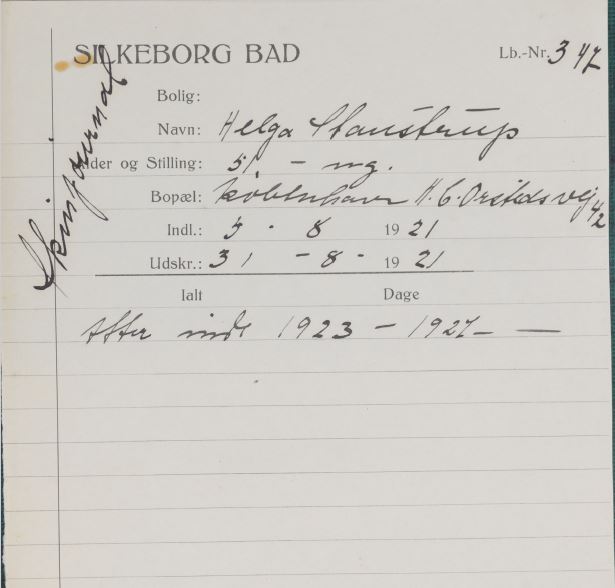 SILKEBORG BAD
Lb.-Nr. 347
Skinjournal
Bolig:
Navn: Helga Stanstrup
Alder og Stilling: 51 - ug.
Bopæl: København H. C. Ørstedsvej 4/2
Indl.: 5 - 8 1921
Udskr.: 31 - 8 - 1921
Ialt Dage
Atter indl 1923 - 1927 - —